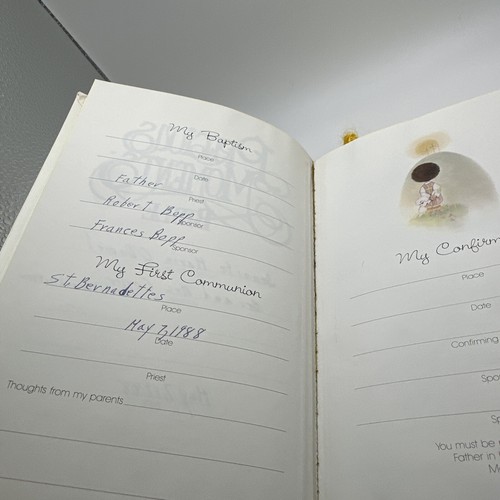 My Baptism
Place
Date
Father
Priest
Robert Bopp
Sponsor
Frances Bopp
Sponsor
My First Communion
St. Bernadettes
Place
May 7, 1988
Date
Priest
Thoughts from my parents
My Confirm
Place
Date
Confirming
Spo
Sp
You must be
Father in